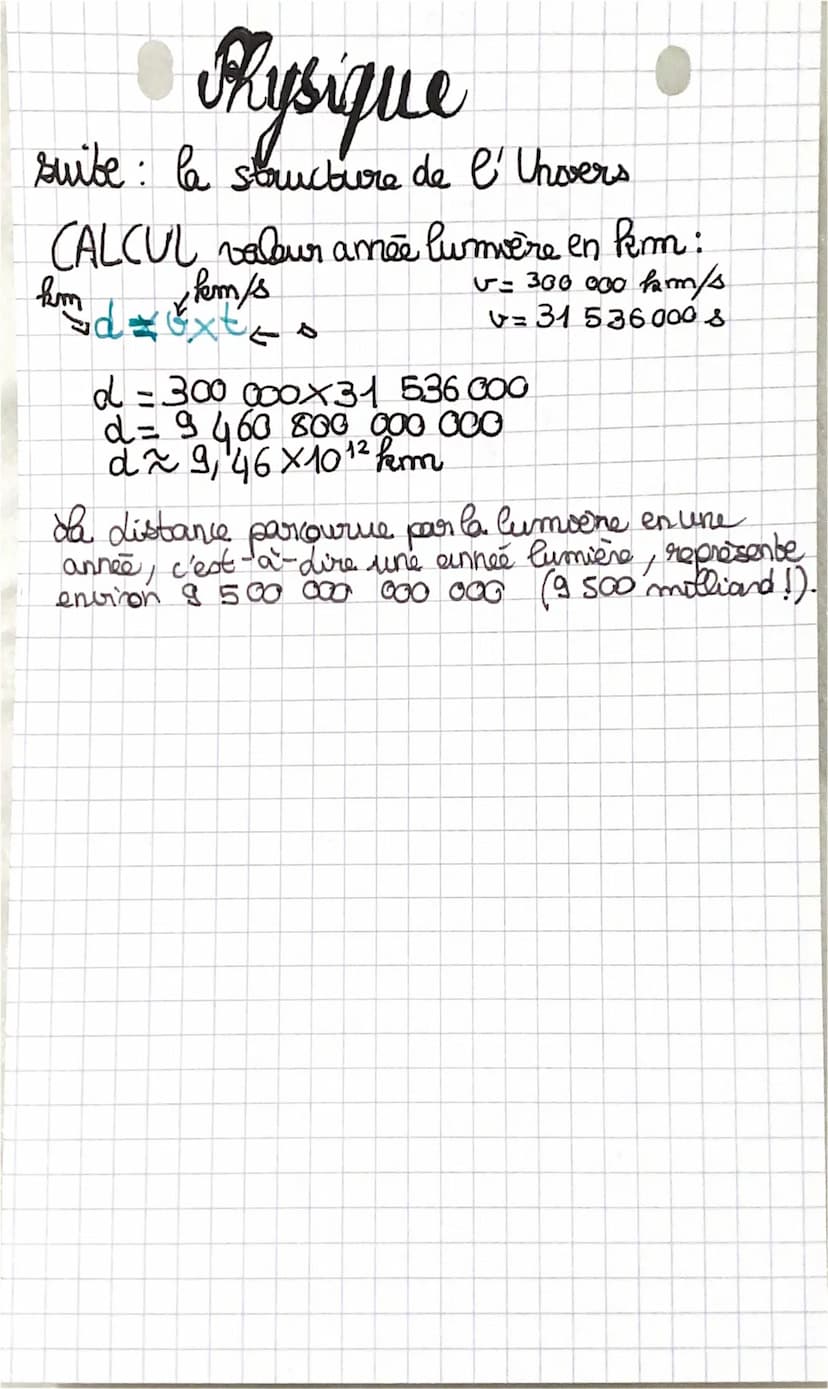 Physique
suite : la structure de l'Univers
CALCUL valeur année lumière en km :
km km/s v = 300 000 km/s
d = v x t ← s v = 31 536 000 s
d = 300 000 x 31 536 000
d = 9 460 800 000 000
d ≈ 9,46 x 10¹² km
La distance parcourue par la lumière en une
année, c'est-à-dire une année lumière, représente
environ 9 500 000 000 000 (9 500 milliard !).